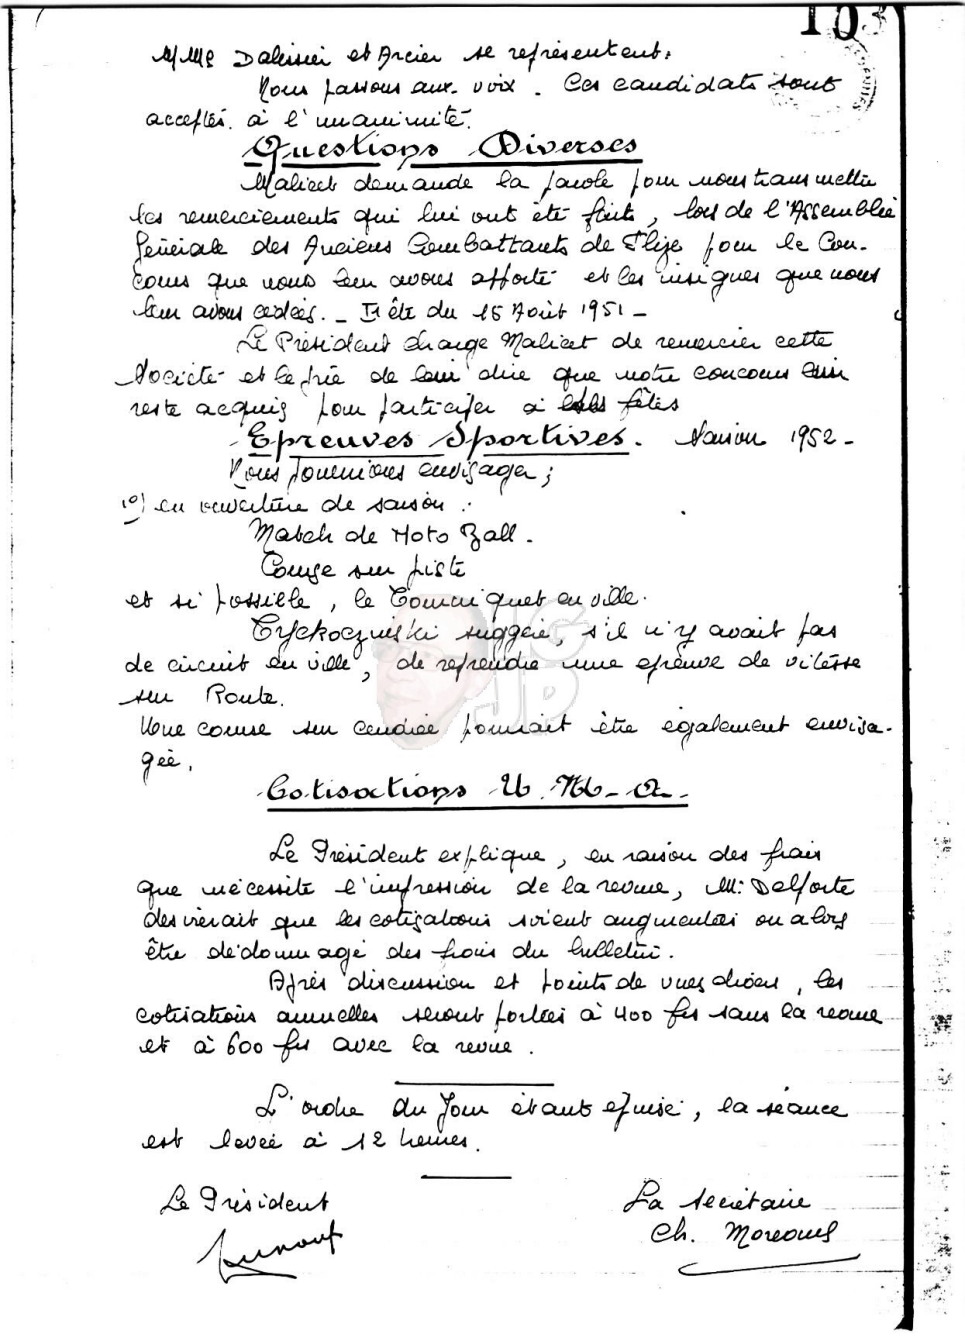 103
MMs Dalissier et Arcier se représentent.
Nous passons aux voix. Ces candidats sont
acceptés à l'unanimité.
Questions Diverses
Malicet demande la parole pour nous transmettre
les remerciements qui lui ont été faits, lors de l'Assemblée
Générale des Anciens Combattants de Flize pour le Con-
cours que nous leur avons apporté et les insignes que nous
leur avons cédés. _ Fête du 15 Août 1951 _
Le Président charge Malicet de remercier cette
Société et le prie de leur dire que notre concours leur
reste acquis pour participer à fêtes
Epreuves Sportives. Saison 1952 _
Nous pourrions envisager ;
1°) en ouverture de saison :
Match de Moto Ball.
Course sur piste
et si possible, le Circuit en ville.
Tyckoczinski suggère, s'il n'y avait pas
de circuit en ville, de reprendre une épreuve de vitesse
sur Route.
Une course sur cendrée pourrait être également envisa-
gée.
Cotisations U.M.A.
Le Président explique, en raison des frais
que nécessite l'impression de la revue, M. Delforte
désirerait que les cotisations soient augmentées ou alors
être dédommagé des frais du bulletin.
Après discussion et points de vues divers, les
cotisations annuelles seront portées à 400 frs sans la revue
et à 600 frs avec la revue.
L'ordre du Jour étant épuisé, la séance
est levée à 12 heures.
Le Président
La Secrétaire
Ch. Moreaux
IGJP